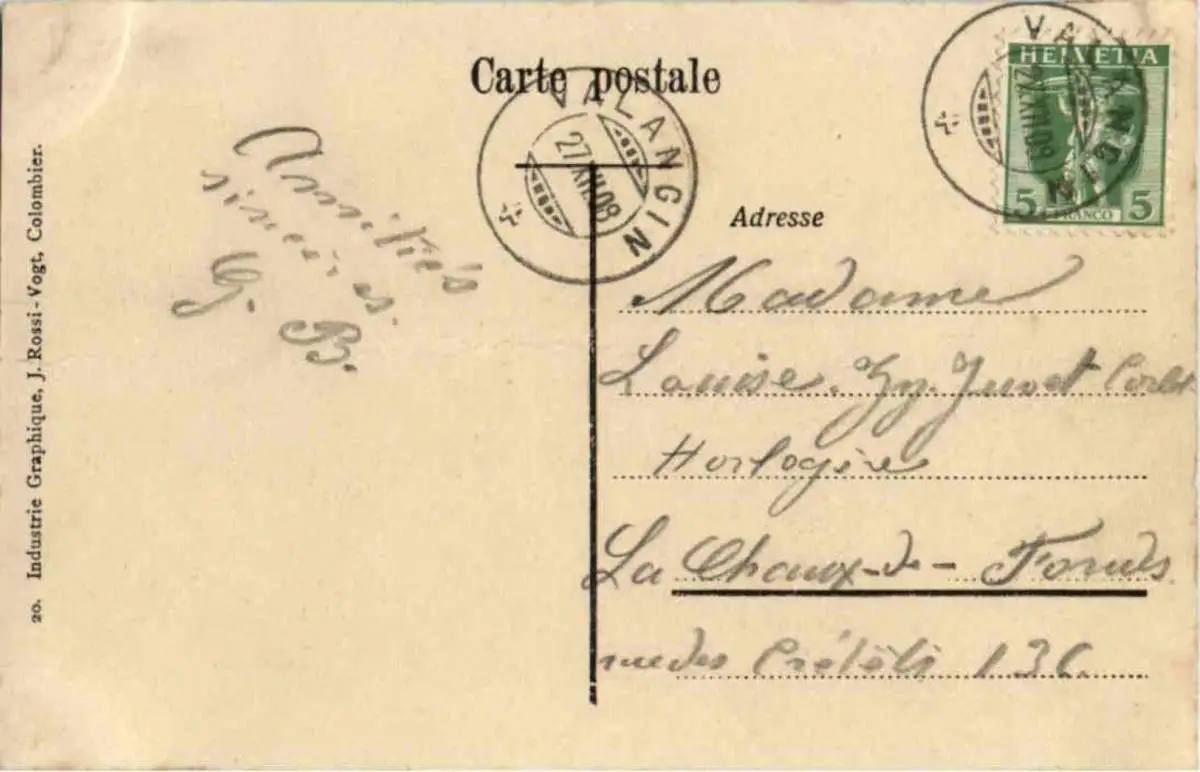 Carte postale
VALANGIN
27.XII.09
HELVETIA
5 FRANCO 5
VALANGIN
27.XII.09
Amitiés
sincères.
G. B.
Adresse
Madame
Louise. Juvet
Horlogère
La Chaux-de-Fonds
rue des
20. Industrie Graphique, J. Rossi-Vogt, Colombier.